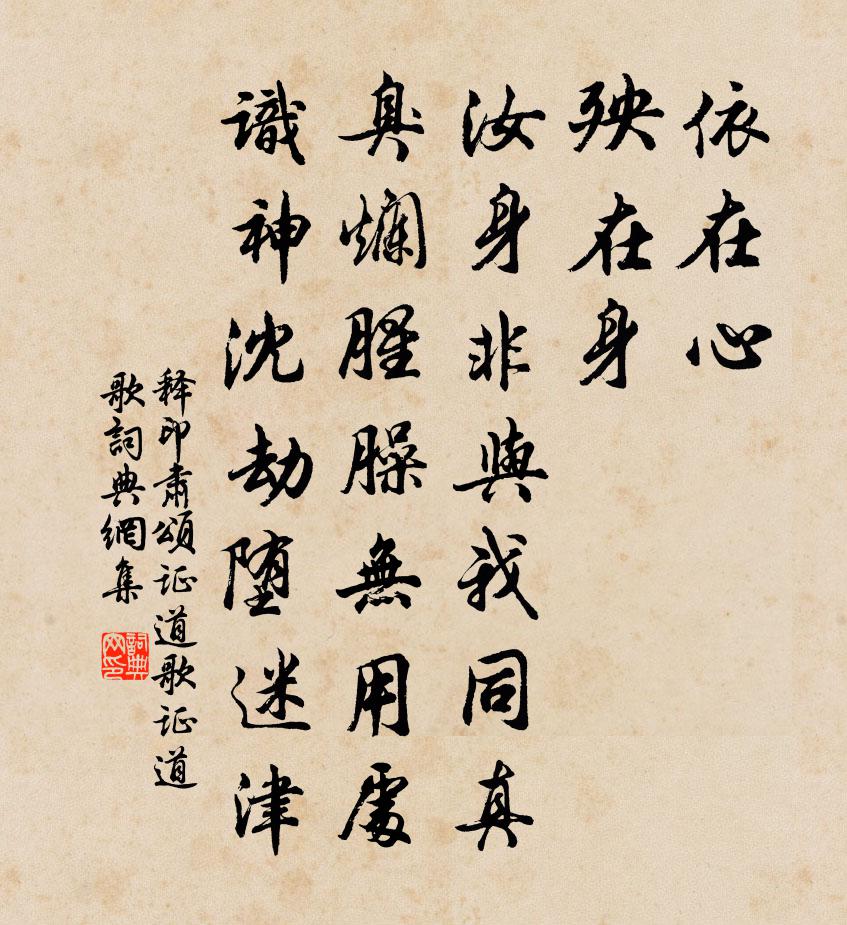 依在心
殃在身
汝身非與我同真
臭爛腥臊無用處
識神沈劫堕迷津
释印肃頌证道歌证道
歌詞典網集
詞典网印